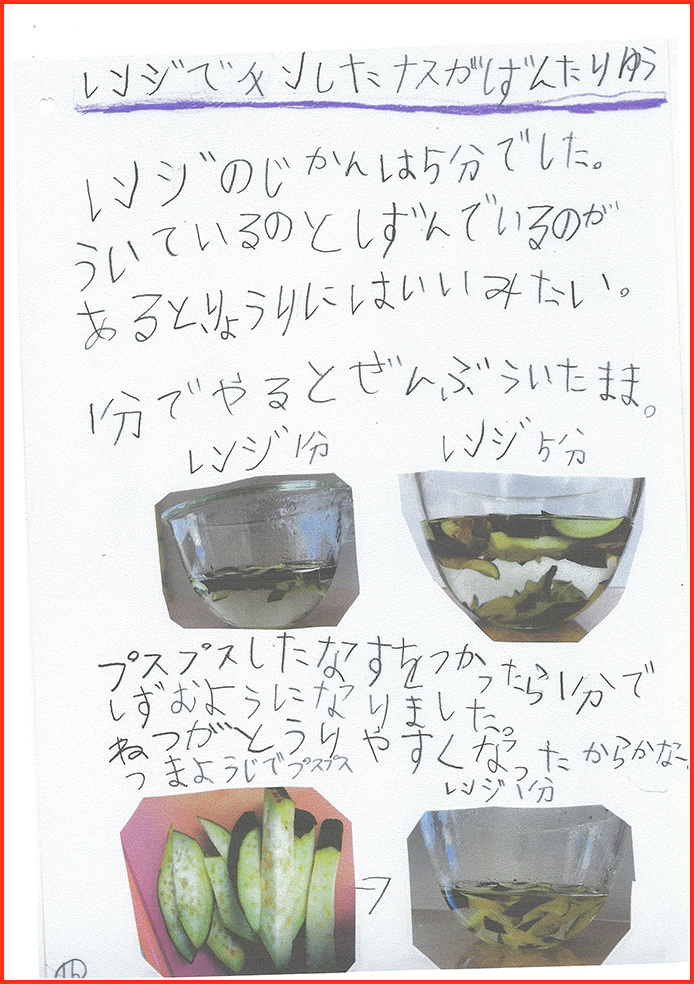 レンジでチンしたナスがしずんだりゆう
レンジのじかんは5分でした。
ういているのとしずんでいるのが
あると、りょうりにはいいみたい。
1分でやるとぜんぶういたまま。
レンジ1分
レンジ5分
プスプスしたなすをつかったら1分で
しずむようになりました。
ねつがとうりやすくなったからかな〜
つまようじでプスプス
レンジ1分